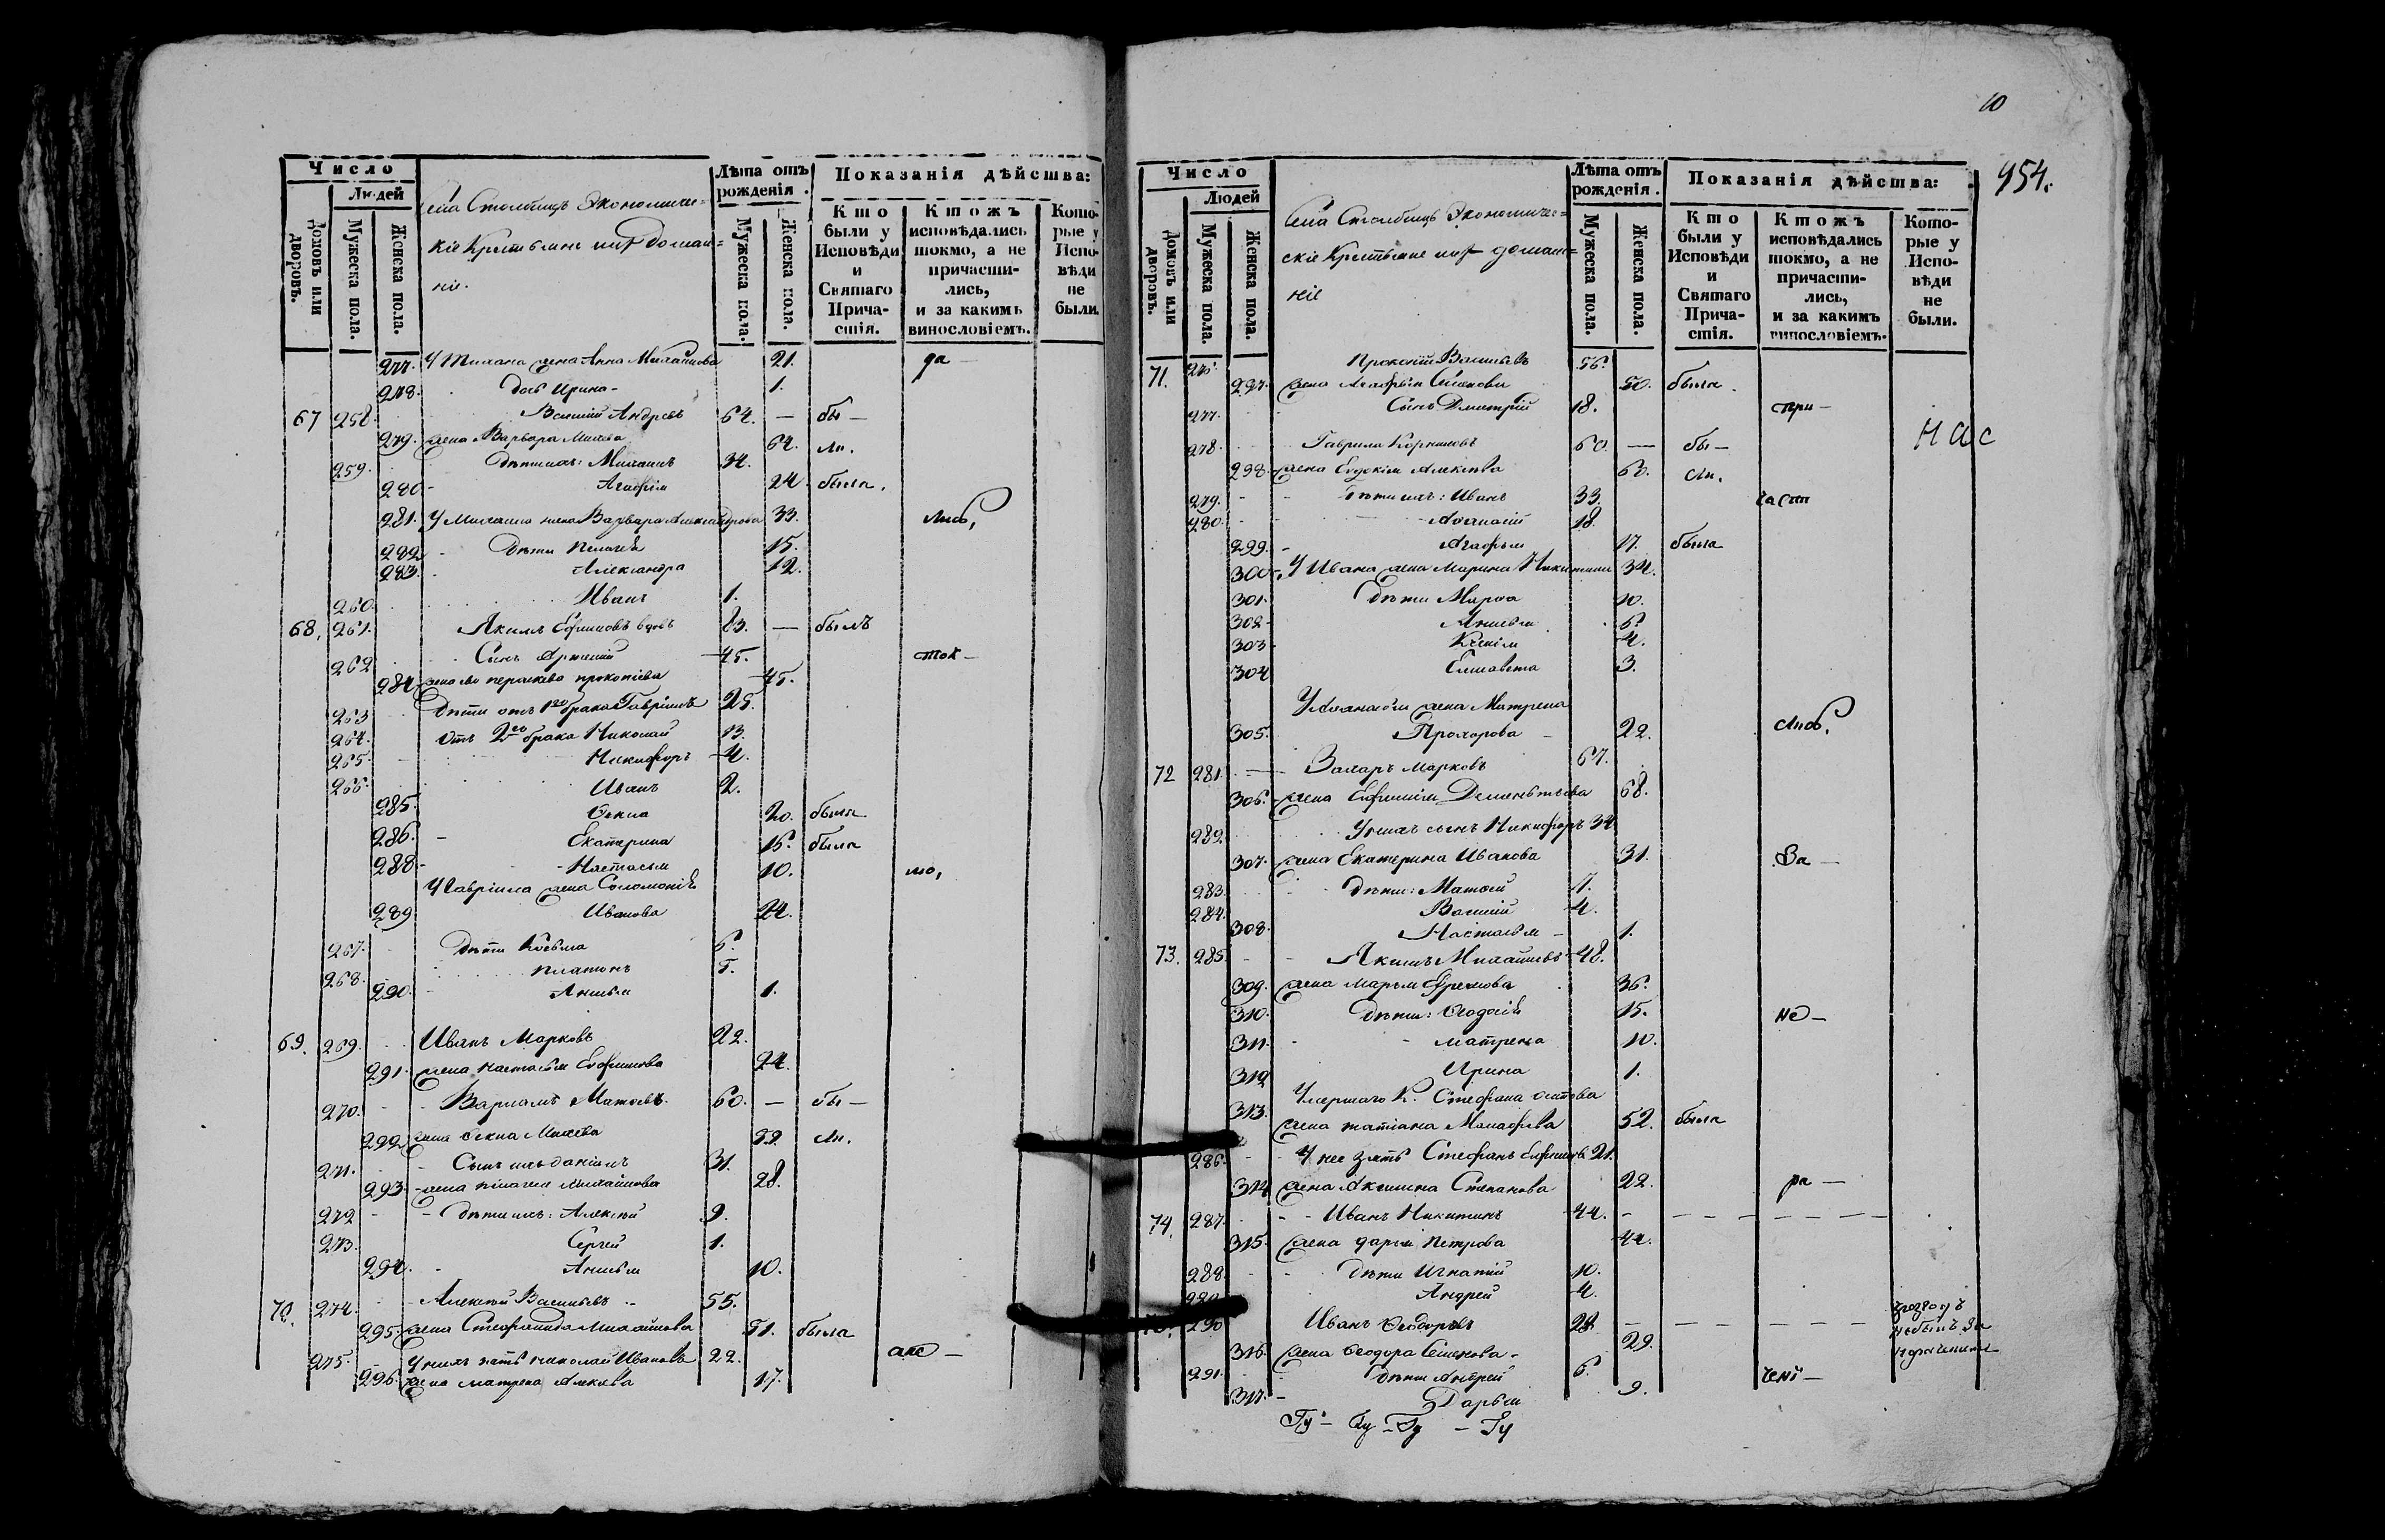 Число
Людей
Домовъ или дворовъ.
Мужеска пола.
Женска пола.
Села Столбищъ Экономиче=
скіе Крестьяне ихъ домаш=
ніе.
Лѣта отъ рожденія.
Мужеска пола.
Женска пола.
Показанія дѣйства:
Кто были у Исповѣди и Святаго Причастія.
Ктожъ исповѣдались токмо, а не причастились, и за какимъ винословіемъ.
Которые у Исповѣди не были.
277. У жена Анна Михайлова 21. да
278. дочь Ирина 1.
67 258. Василій Андреевъ 64. — бы —
279. жена Варвара 64. ли.
259. Дѣти ихъ: Михаилъ 34.
280 Агафія 24 была.
281. У Михаила жена Варвара Александрова 33. лись,
282 Дѣти Пелагея 15.
283. Александра 12.
260. Иванъ 1.
68. 261. Якимъ Ефимовъ вдовъ 83. — былъ
262 Сынъ Артемій 45. ток —
284. жена его Парасковья Прокопіева 45.
263 Дѣти отъ 1го брака Гаврілъ 25.
264. Отъ 2го брака Николай 13.
265. Никифоръ 4.
266. Иванъ 2.
285. Фекла 20. была
286. Екатерина 15. была
288 Настасья 10. мо,
У Гавріила жена Соломонія
289 Иванова 24.
267. Дѣти Козьма 6.
268. Платонъ 5.
290. Анисья 1.
69. 269. Иванъ Марковъ 22.
291. жена Настасья Ефимова 24.
270. Варламъ Матвѣевъ. 60. — бы —
292 жена Фекла 52 ли.
271. Сынъ ихъ Даніилъ 31.
293. жена Пелагея Михайлова 28.
272 Дѣти ихъ: Алексѣй 9.
273. Сергѣй 1.
294. Анисья 10.
70. 274. Алексѣй Васильевъ 55.
295. жена Стефанида Михайлова 51. была
275. У нихъ зять Николай Ивановъ 22. а не —
296. жена Матрена Алексѣева 17.
10
954.
Число
Людей
Домовъ или дворовъ.
Мужеска пола.
Женска пола.
Села Столбищъ Экономиче=
скіе Крестьяне ихъ домаш=
ніе
Лѣта отъ рожденія.
Мужеска пола.
Женска пола.
Показанія дѣйства:
Кто были у Исповѣди и Святаго Причастія.
Ктожъ исповѣдались токмо, а не причастились, и за какимъ винословіемъ.
Которые у Исповѣди не были.
71. 276. Прокопій Васильевъ 56.
297. жена Агафья Семенова 50. была
277. Сынъ Дмитрій 18. при —
278. Гаврила 60. — бы —
Н а с
298. жена Евдокія Алексѣева 60. ли.
279. Дѣти ихъ: Иванъ 33. част
280. Аѳанасій 18.
299. Агафья 17. была
300. У Ивана жена Марина Никитина 34.
301. Дѣти Марѳа 10.
302 Анисья 6.
303 Ксенія 4.
304 Елисавета 3.
У Аѳанасія жена Матрена
305. Прохорова 22. лись.
72 281. Захаръ Марковъ 67.
306. жена Ефимія Дементьева 68.
282 У нихъ сынъ Никифоръ 34.
307. жена Екатерина Иванова 31. За —
283. Дѣти: Матвѣй 7.
284. Василій 4.
308. Настасья 1.
73. 285. Якимъ Михайловъ 48.
309. жена Марья Ефремова 36.
310. Дѣти: Ѳеодосія 15. не —
311. Матрена 10.
312 Ирина 1.
Умершаго К. Стефана
313. жена Татіана 52. была
286. У нее зять Стефанъ Ефимовъ 21.
314 жена Акилина Степанова 22. ра —
74. 287. Иванъ Никитинъ 44.
315. жена Дарья Петрова 44.
288. Дѣти Игнатій 10.
289. Андрей 4.
290 Иванъ Ѳеодоровъ 28.
316. жена Ѳеодора Семенова 29.
291. Дѣти Андрей 6. чені —
317. Дарья 9.